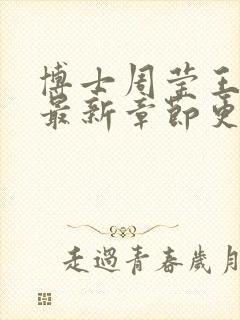 博士周莹王
最新章節更
走過青春歲月